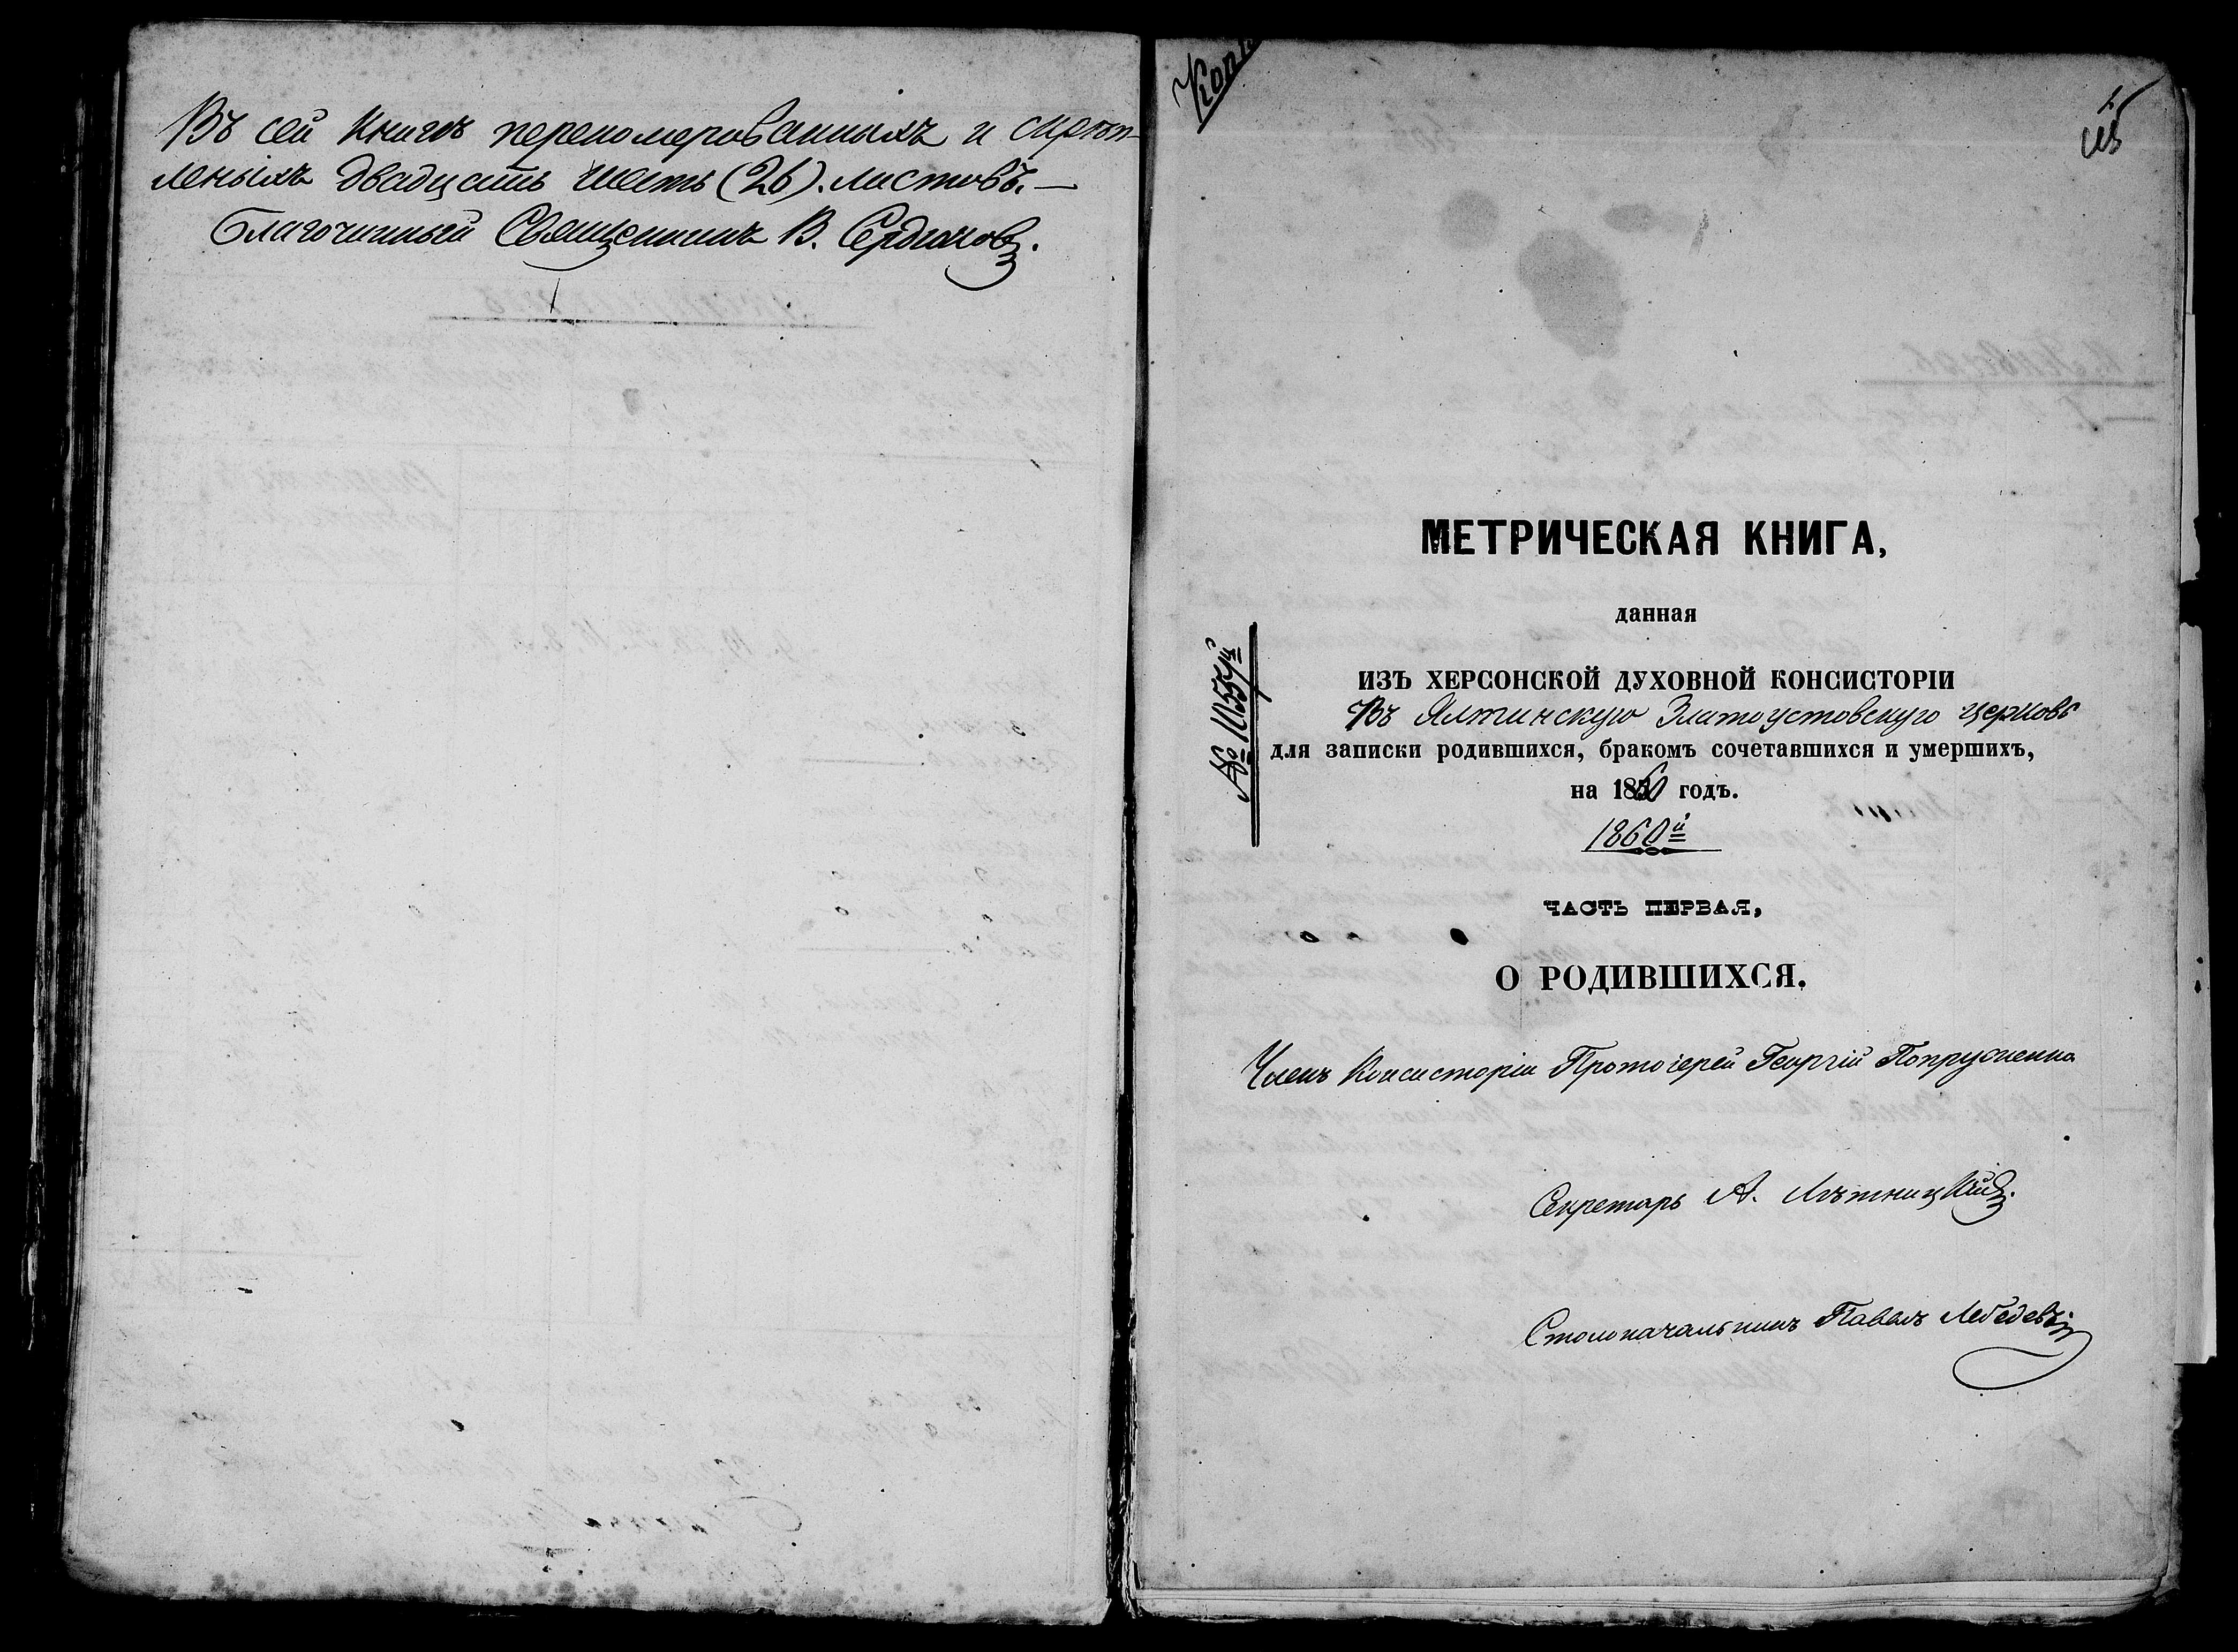 Въ сей книгѣ перенумерованныхъ и скрѣп-
леныхъ двадцать шесть (26). листовъ. —
Благочинный Священникъ В. Сердюковъ.
Копі
1.
МЕТРИЧЕСКАЯ КНИГА,
данная
ИЗЪ ХЕРСОНСКОЙ ДУХОВНОЙ КОНСИСТОРІИ
Въ Ялтинскую Златоустовскую церковь
для записки родившихся, бракомъ сочетавшихся и умершихъ,
на 1860 годъ.
1860й
№ 10557й
ЧАСТЬ ПЕРВАЯ,
О РОДИВШИХСЯ.
Членъ Консисторіи Протоіерей Георгій Попруженко
Секретарь А. Лѣтницкій.
Столоначальникъ Павелъ Лебедевъ